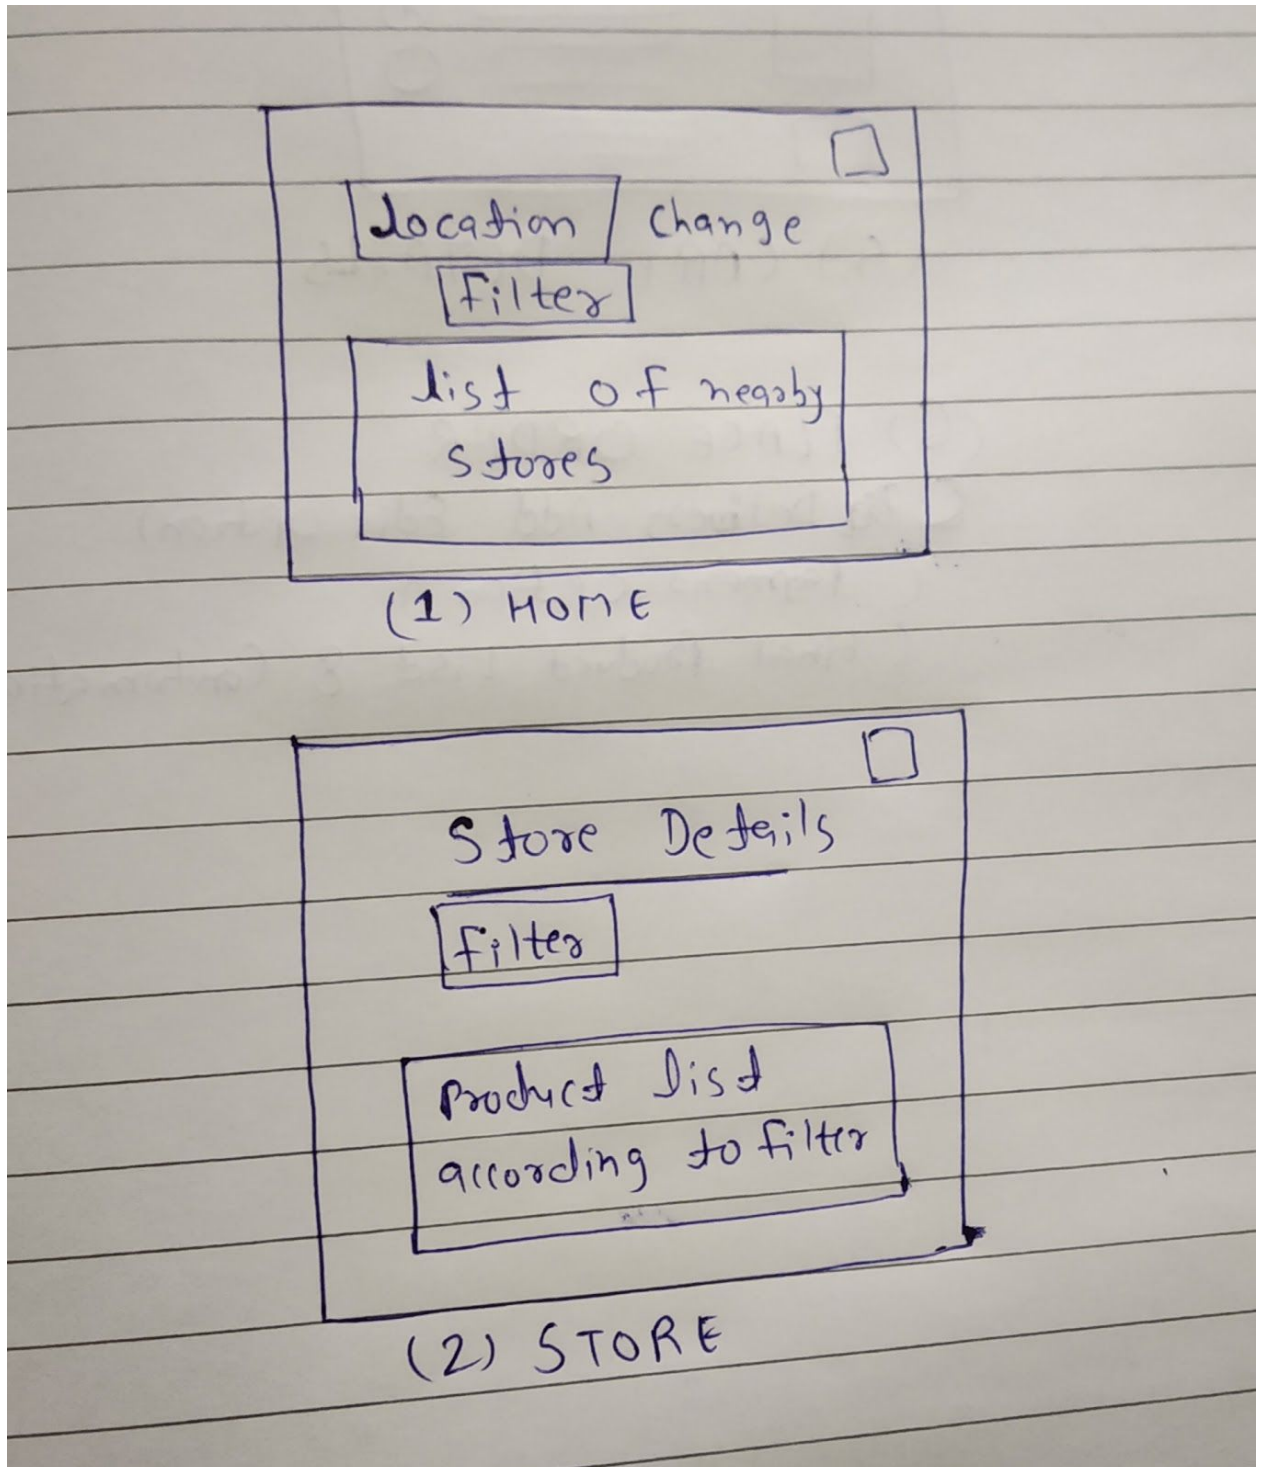 Location Change
Filter
list of nearby
stores
(1) HOME
Store Details
Filter
Product list
according to filter
(2) STORE